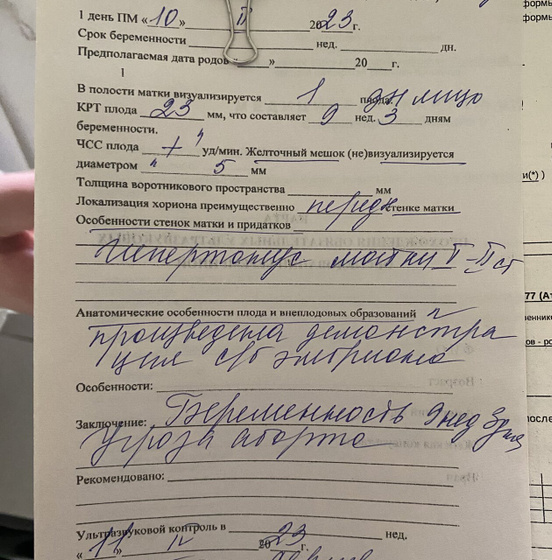 1 день ПМ « 10 » II 2023 г.
Срок беременности нед. дн.
Предполагаемая дата родов « » 20 г.
1
В полости матки визуализируется 1 плода.
КРТ плода 23 мм, что составляет 9 нед. 3 дням
беременности.
ЧСС плода + уд/мин. Желточный мешок (не)визуализируется
диаметром 5 мм
Толщина воротникового пространства мм
Локализация хориона преимущественно передн стенке матки
Особенности стенок матки и придатков
гипертонус матки I-II ст
Анатомические особенности плода и внеплодовых образований
произведена демонстра
ция с/б эмбриона
Особенности:
Заключение: Беременность 9 нед 3 дня
Угроза аборта
Рекомендовано:
Ультразвуковой контроль в нед.
« 11 » IV 2023